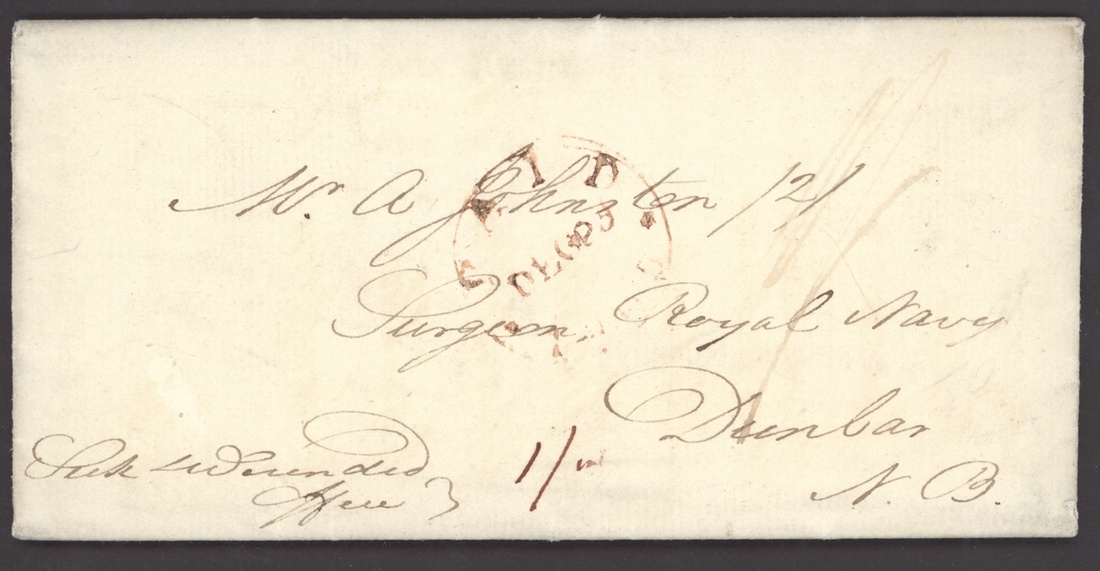 Mr. A Johnston /2/
Surgeon, Royal Navy
Dunbar
N. B.
Sick & Wounded
Office
1/
PAID